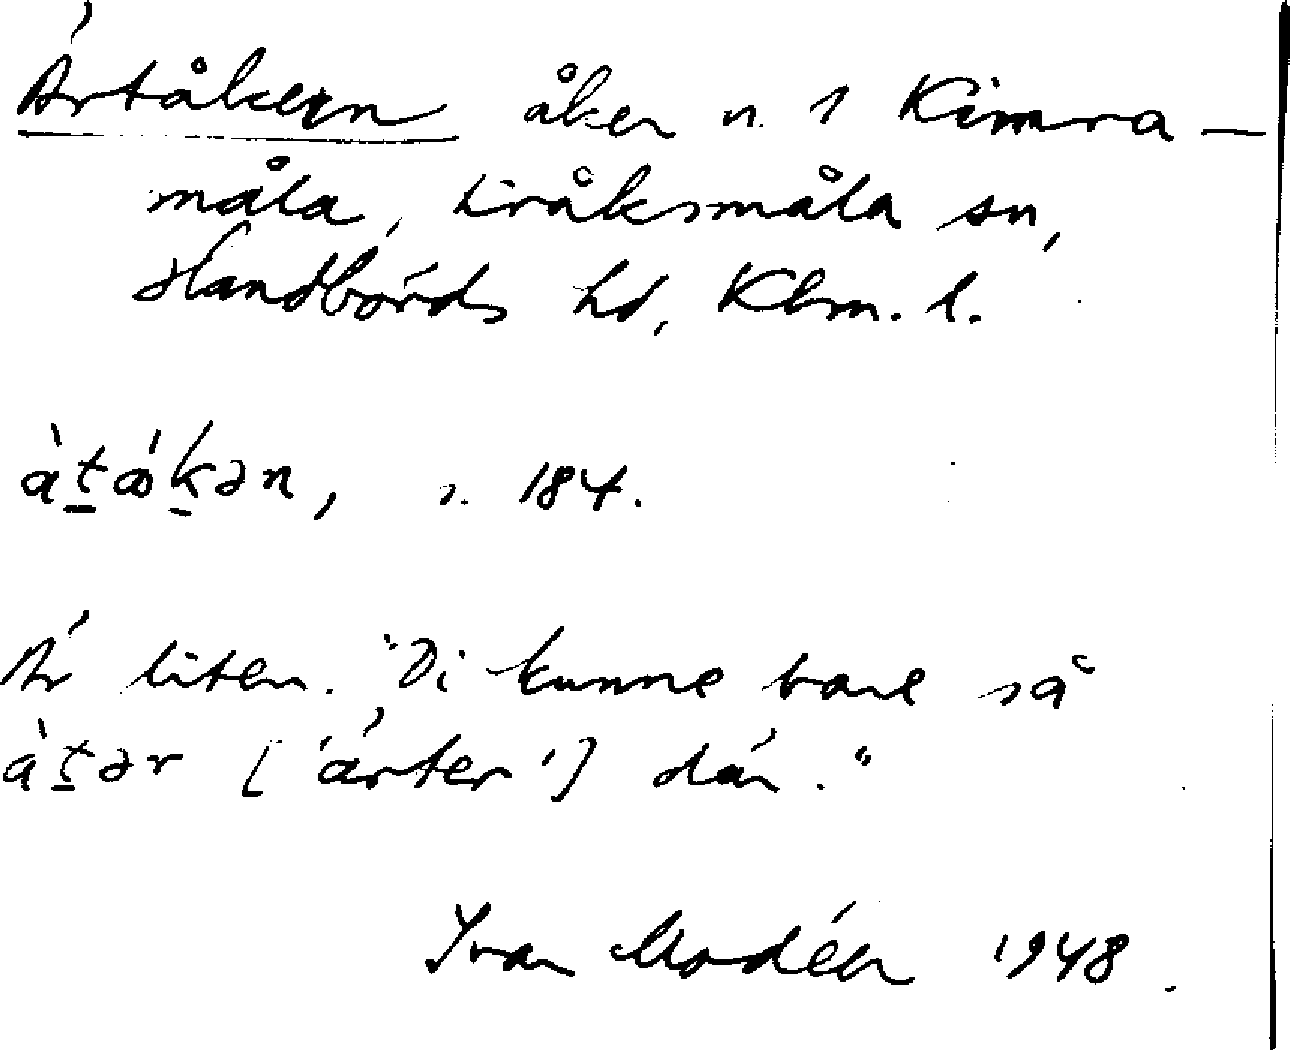 Ärtåkern åker n. 1 Kimra-
måla, Liråksmåla sn,
Handbörds hd, Klm. l.
àt̲ǻk̲ən, s. 184.
Är liten. "Di kunne bare så
àt̲ər ['ärter'] där."
Ivan Modéer 1948.